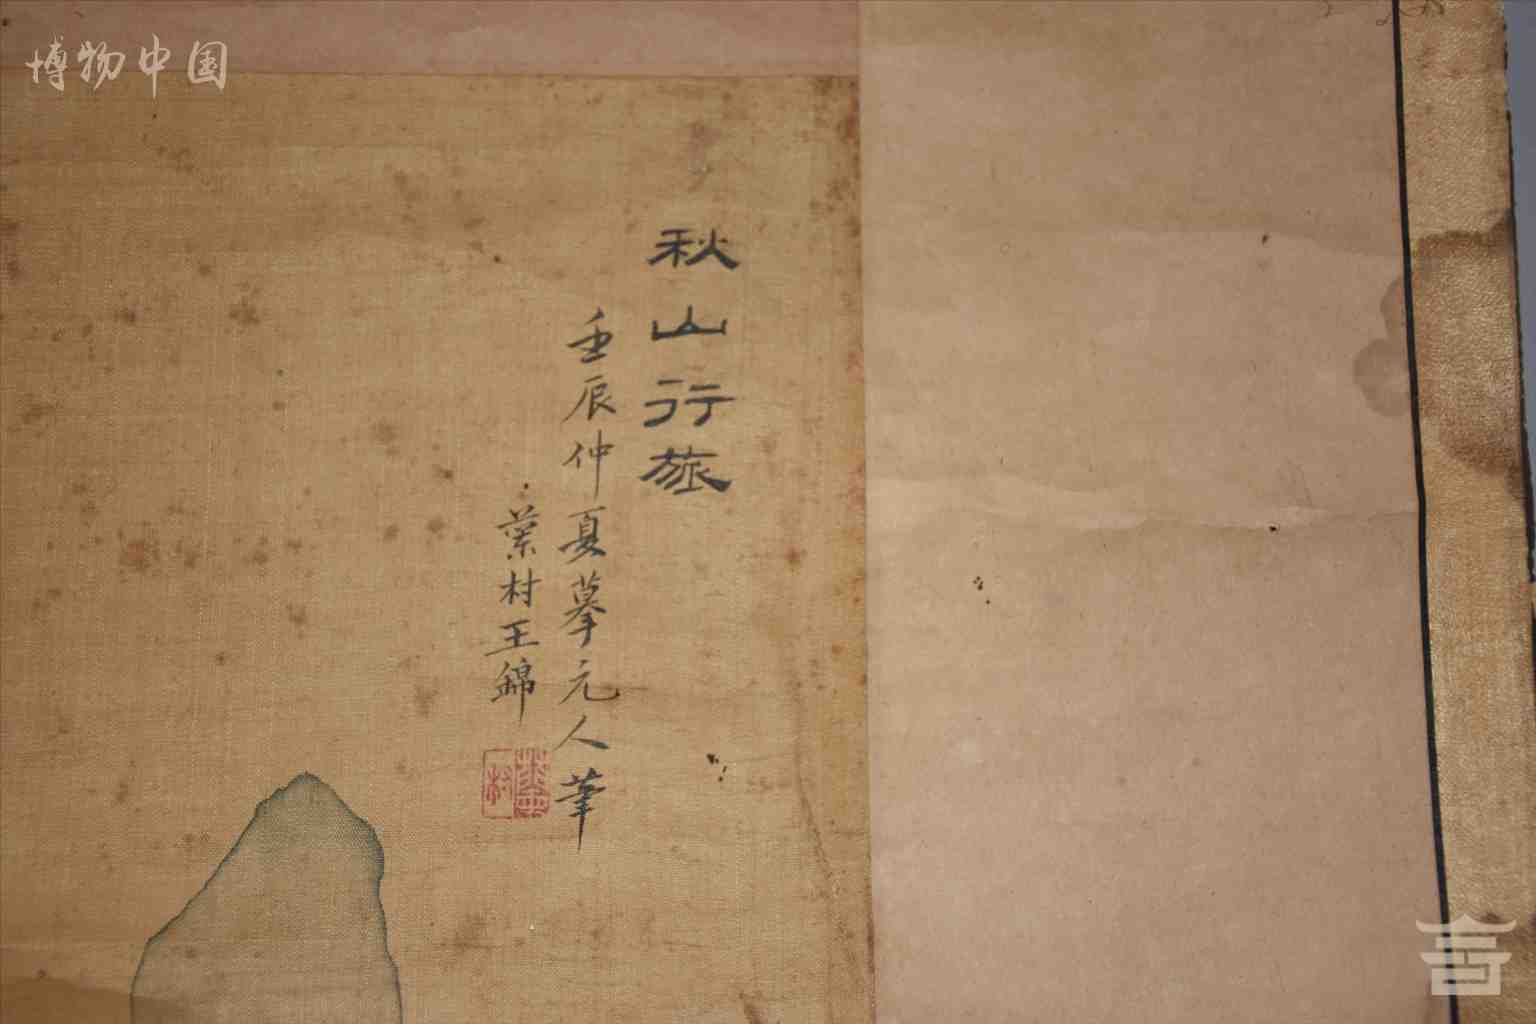 博物中国
秋山行旅
壬辰仲夏摹元人筆
葉村王錦
葉村